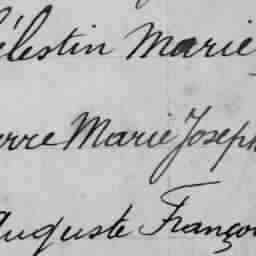 élestin Marie
erre Marie Joseph
Auguste Françoi